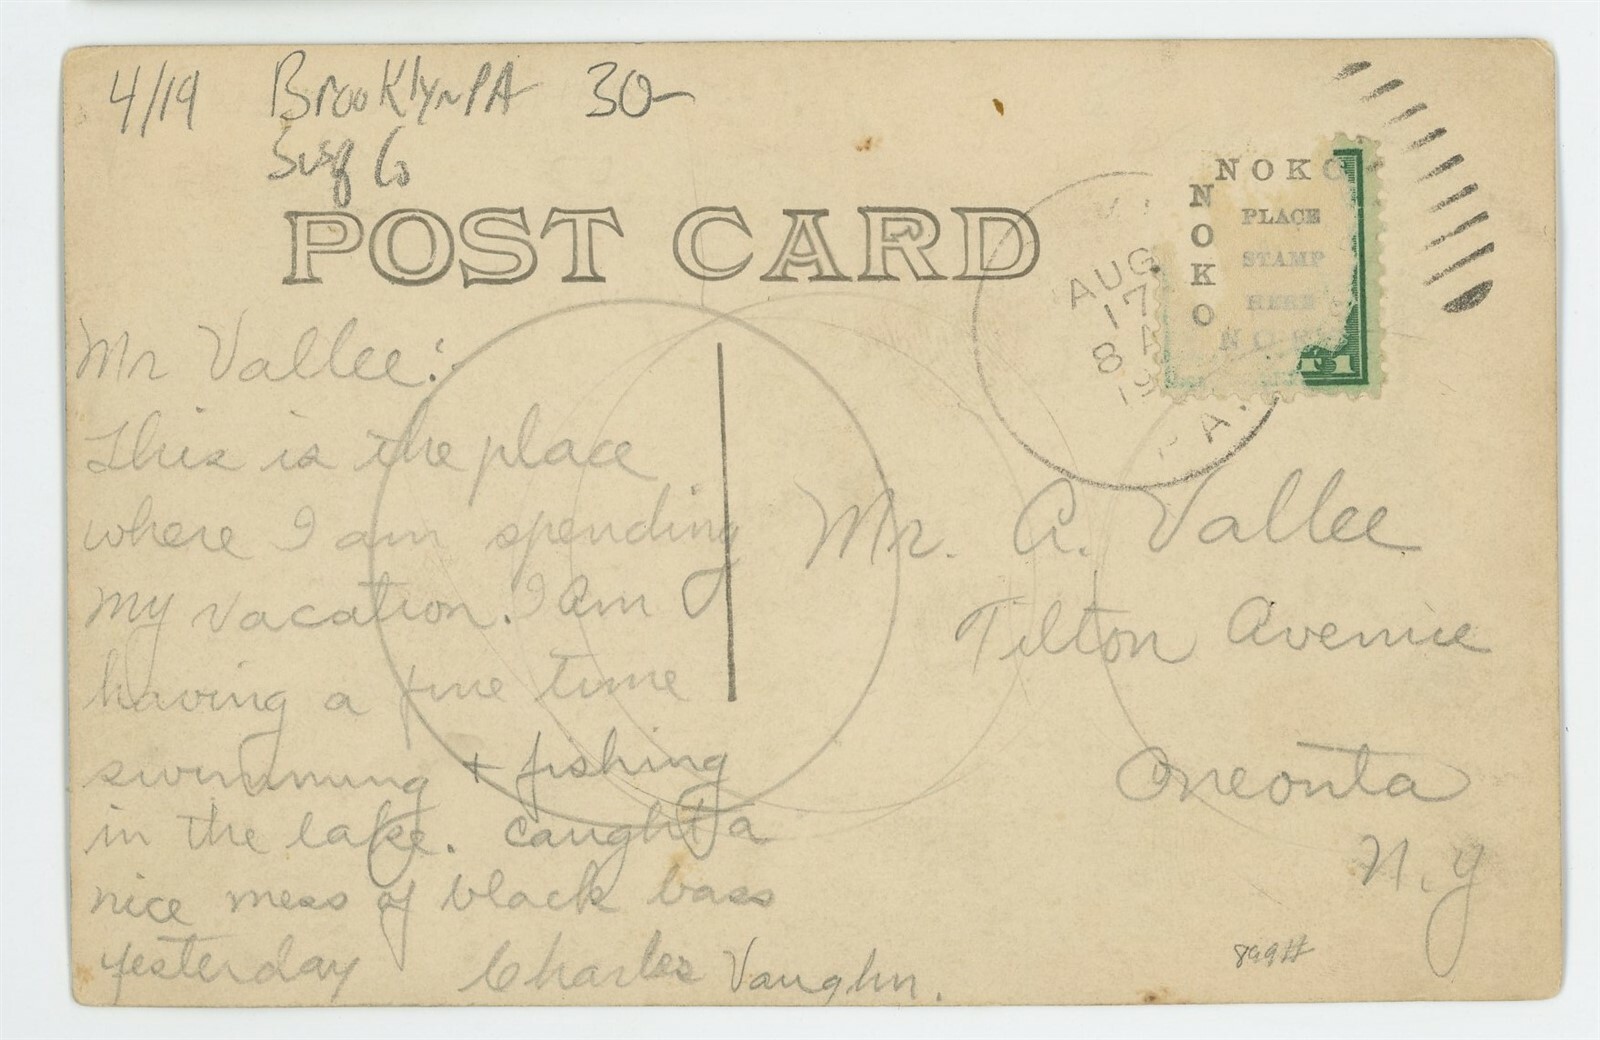 4/19 Brooklyn PA 30-
Susq Co
POST CARD
NOKO
NOKO
PLACE
STAMP
HERE
AUG
17
8 A
19
PA.
1
Mr Vallee:-
This is the place
where I am spending
my vacation. I am
having a fine time
swimming + fishing
in the lake. Caught a
nice mess of black bass
yesterday Charles Vaughn.
Mr. A. Vallee
Tilton Avenue
Oneonta
N.Y